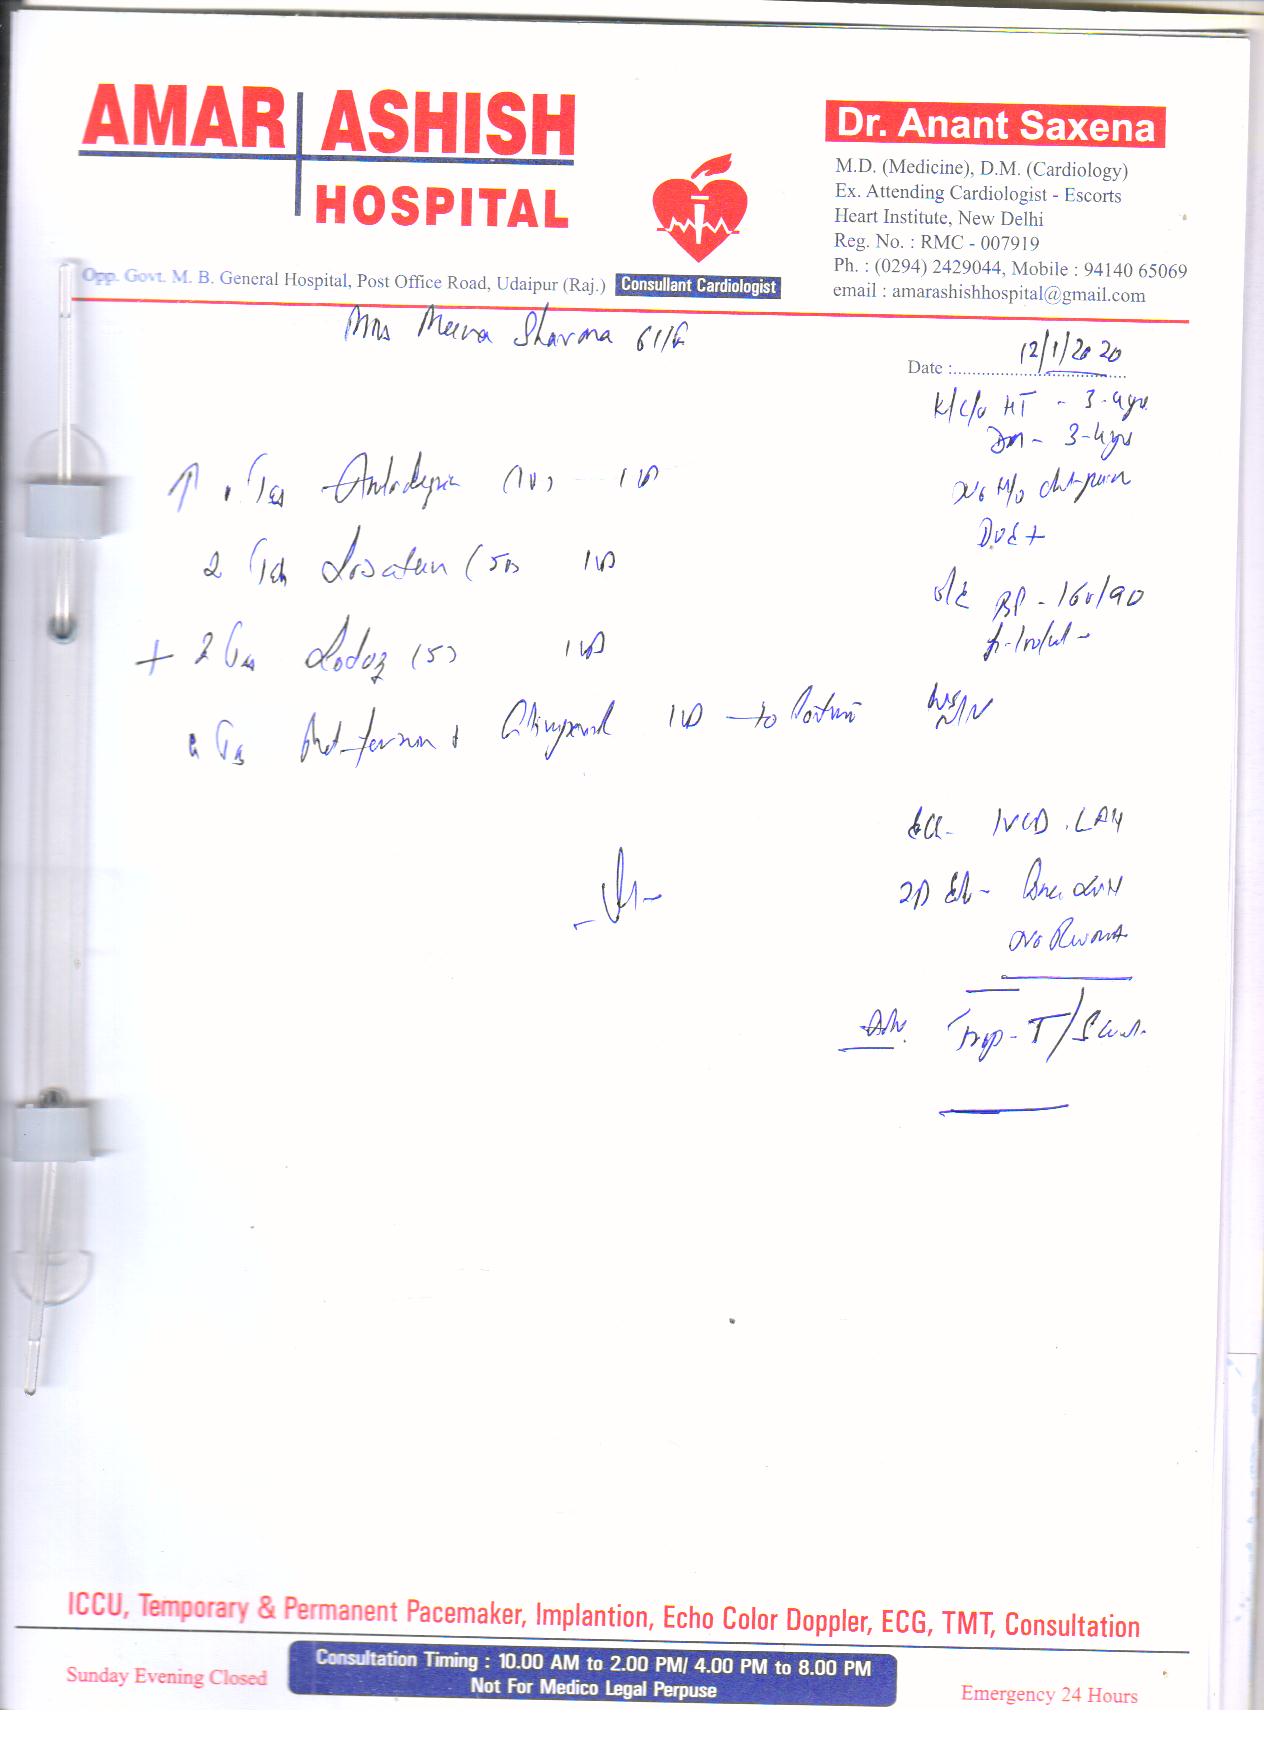 AMAR ASHISH
HOSPITAL
Opp. Govt. M. B. General Hospital, Post Office Road, Udaipur (Raj.)
Consullant Cardiologist
Dr. Anant Saxena
M.D. (Medicine), D.M. (Cardiology)
Ex. Attending Cardiologist - Escorts
Heart Institute, New Delhi
Reg. No. : RMC - 007919
Ph. : (0294) 2429044, Mobile : 94140 65069
email : amarashishhospital@gmail.com
Mrs Meera Sharma 61/F
Date : 12/1/2020
K/C/O HT - 3-4yrs
DM - 3-4yrs
No H/O
DOE +
O/E BP - 160/90
↑ (10) 1D
2 Tab Losartan (50) 1D
+ 2 Lodoz (5) 1D
Metformin + 1D → to
IVCD. LAH
2D
No RWMA
Adv. Trop-T/
ICCU, Temporary & Permanent Pacemaker, Implantion, Echo Color Doppler, ECG, TMT, Consultation
Sunday Evening Closed
Consultation Timing : 10.00 AM to 2.00 PM/ 4.00 PM to 8.00 PM
Not For Medico Legal Perpuse
Emergency 24 Hours